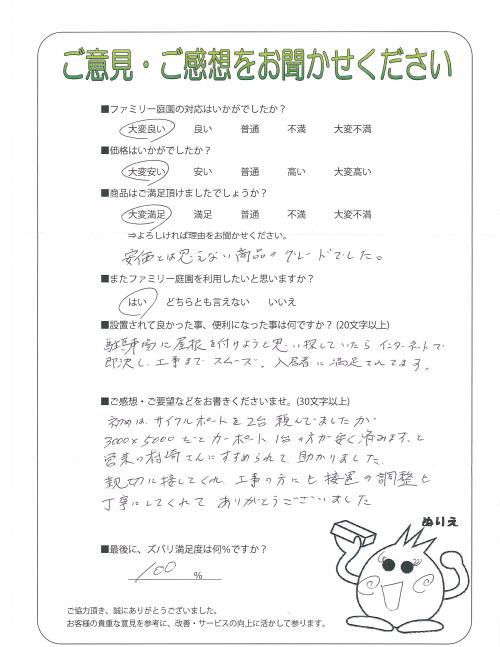 ご意見・ご感想をお聞かせください
■ファミリー庭園の対応はいかがでしたか？
大変良い 良い 普通 不満 大変不満
■価格はいかがでしたか？
大変安い 安い 普通 高い 大変高い
■商品はご満足頂けましたでしょうか？
大変満足 満足 普通 不満 大変不満
⇒よろしければ理由をお聞かせください。
安価とは思えない商品のグレードでした。
■またファミリー庭園を利用したいと思いますか？
はい どちらとも言えない いいえ
■設置されて良かった事、便利になった事は何ですか？ (20文字以上)
駐車場に屋根を付けようと思い探していたらインターネットで
即決し、工事までスムーズ。入居者に満足されてます。
■ご感想・ご要望などをお書きくださいませ。(30文字以上)
初めは、サイクルポートを2台頼んでいましたが
3000×5000だとカーポート1台の方が安く済みます、と
営業の村崎さんにすすめられて、助かりました。
親切に接してくれ、工事の方にも 位置の調整も
丁寧にしてくれて ありがとうございました
ぬりえ
■最後に、ズバリ満足度は何％ですか？
100 ％
ご協力頂き、誠にありがとうございました。
お客様の貴重な意見を参考に、改善・サービスの向上に活かして参ります。